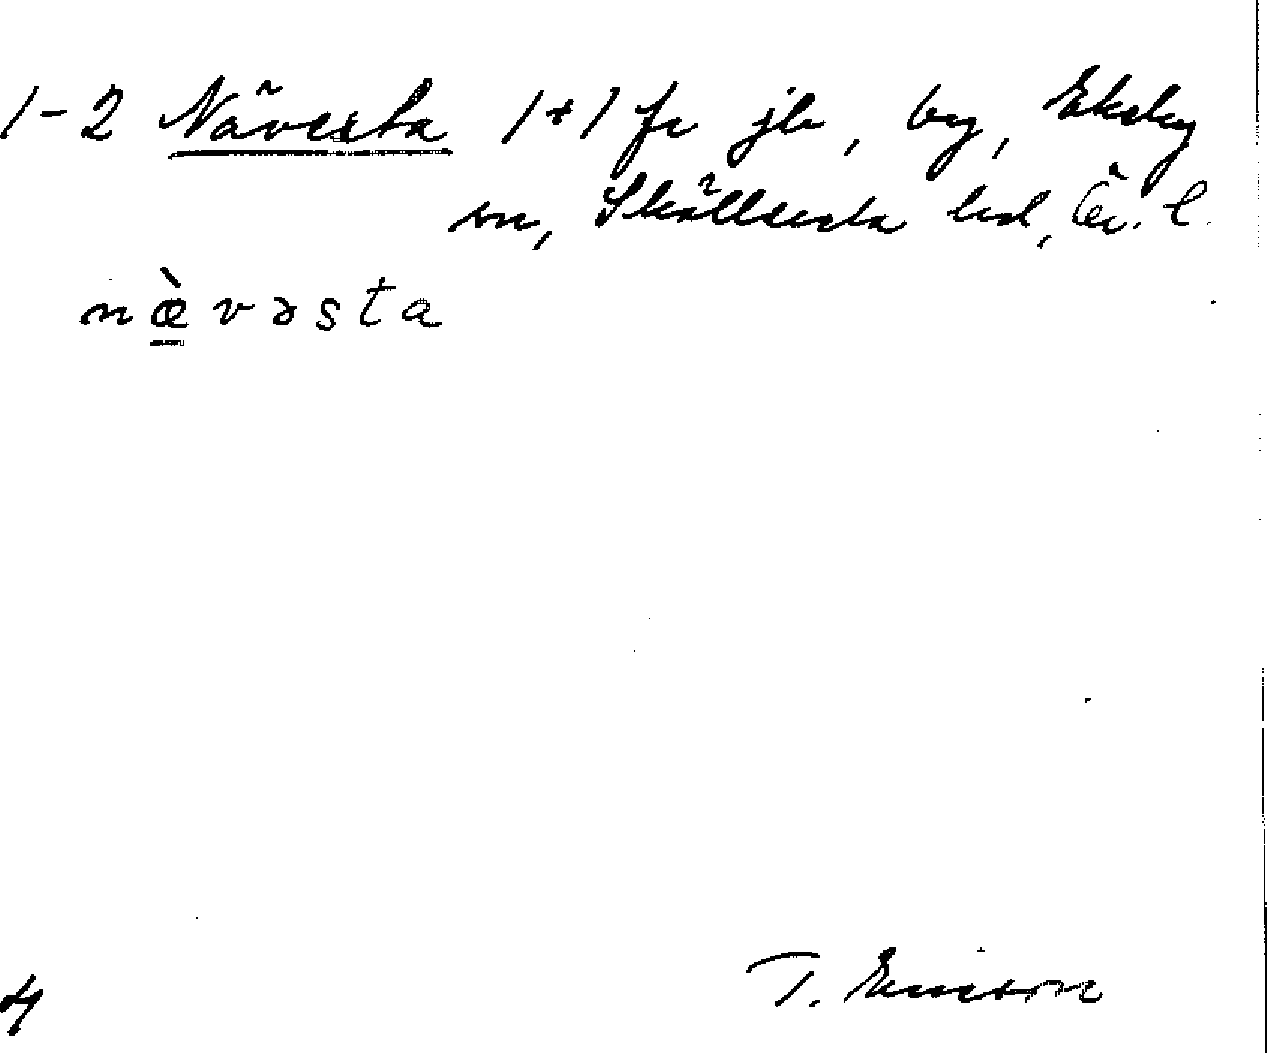 1-2 Näversta 1+1 fr jb, by, Ekeby
sn, Skyllersta hd, Ör. l.
næ̀vəsta
T. Ericsson